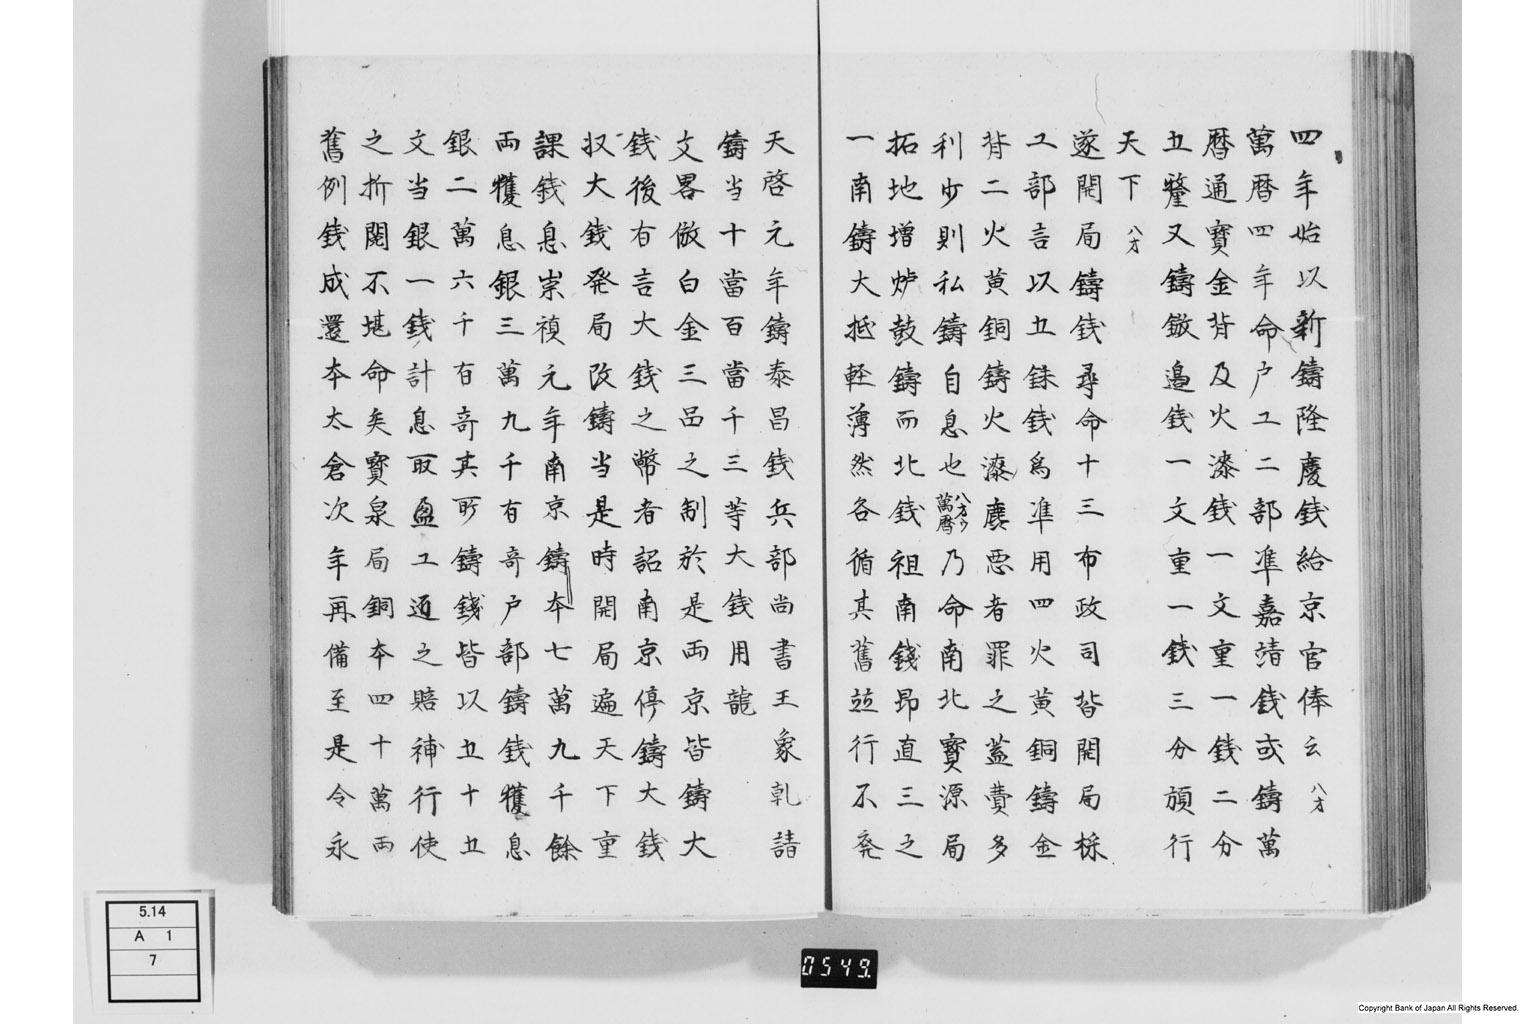 四年始以新鋳隆慶銭給京官俸云 八才
萬暦四年命户工二部凖嘉靖銭或鋳萬
暦通寳金背及火漆銭一文重一銭二分
五釐又鋳鏇邉銭一文重一銭三分頒行
天下 八才
遂開局鋳銭尋命十三布政司皆開局採
工部言以五銖銭爲凖用四火黄銅鋳金
背二火黄銅鋳火漆麁悪者罪之蓋費多
利少則私鋳自息也 萬暦 八才ウ 乃命南北寳源局
拓地増炉鼓鋳而北銭祖南銭昂直三之
一南鋳大抵軽薄然各循其舊並行不廃
天啓元年鋳泰昌銭兵部尚書王象乹請
鋳当十當百當千三等大銭用龍
文畧倣白金三品之制於是両京皆鋳大
銭後有言大銭之幣者詔南京停鋳大銭
収大銭発局改鋳当是時開局遍天下重
課銭息崇禎元年南京鋳本七萬九千餘
両獲息銀三萬九千有竒户部鋳銭獲息
銀二萬六千有竒其所鋳錢皆以五十五
文当銀一錢計息取盈工迺之賠補行使
之折閲不堪命矣寳泉局銅本四十萬両
舊例銭成還本太倉次年再備至是令永
5.14
A 1
7
0549.
Copyright Bank of Japan All Rights Reserved.